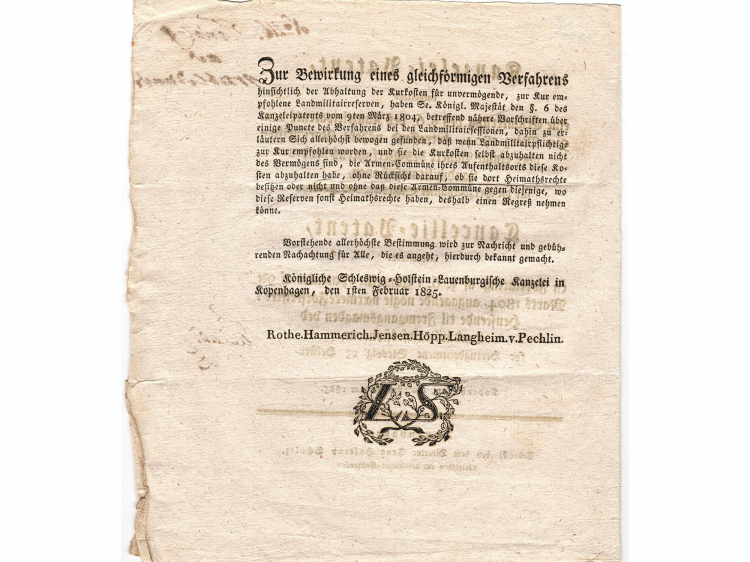 Zur Bewirkung eines gleichförmigen Verfahrens
hinsichtlich der Abhaltung der Kurkosten für unvermögende, zur Kur em-
pfohlene Landmilitairreserven, haben Se. Königl. Majestät den §. 6 des
Kanzeleipatents vom 9ten März 1804, betreffend nähere Vorschriften über
einige Puncte des Verfahrens bei den Landmilitairsessionen, dahin zu er-
läutern Sich allerhöchst bewogen gefunden, daß wenn Landmilitairpflichtige
zur Kur empfohlen worden, und sie die Kurkosten selbst abzuhalten nicht
des Vermögens sind, die Armen-Commüne ihres Aufenthaltsorts diese Ko-
sten abzuhalten habe, ohne Rücksicht darauf, ob sie dort Heimathsrechte
besitzen oder nicht und ohne daß diese Armen-Commüne gegen diejenige, wo
diese Reserven sonst Heimathsrechte haben, deshalb einen Regreß nehmen
könne.
Vorstehende allerhöchste Bestimmung wird zur Nachricht und gebüh-
renden Nachachtung für Alle, die es angeht, hierdurch bekannt gemacht.
Königliche Schleswig-Holstein-Lauenburgische Kanzelei in
Kopenhagen, den 1sten Februar 1825.
Rothe. Hammerich. Jensen. Höpp. Langheim. v. Pechlin.
LS